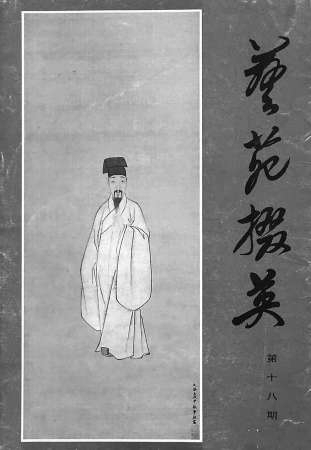 藝苑掇英
第十八期